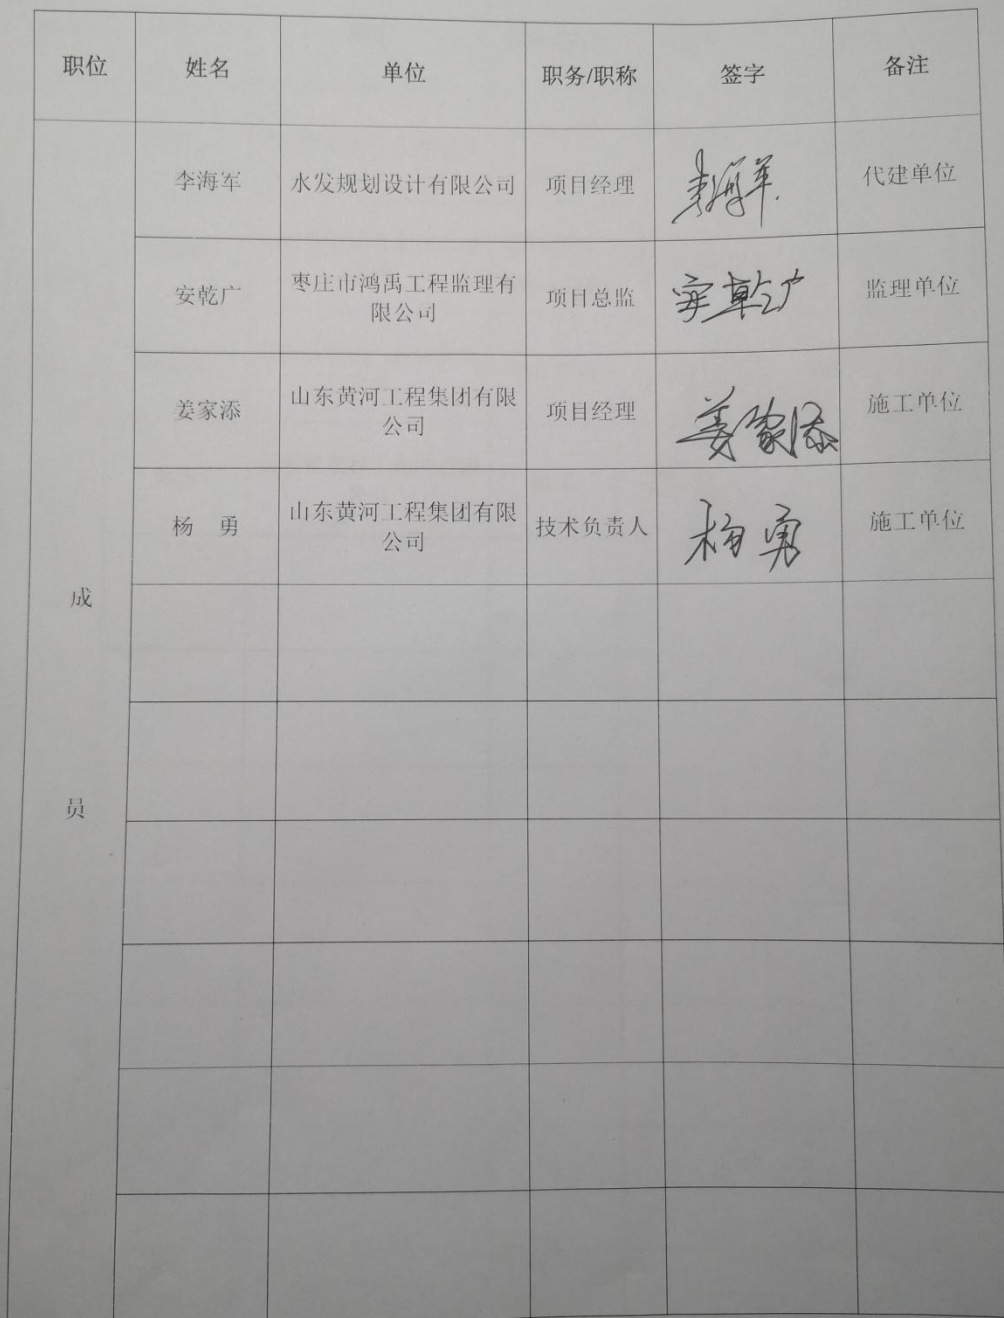 职位 姓名 单位 职务/职称 签字 备注
李海军 水发规划设计有限公司 项目经理 李海军 代建单位
安乾广 枣庄市鸿禹工程监理有 项目总监 安乾广 监理单位
限公司
姜家添 山东黄河工程集团有限 项目经理 姜家添 施工单位
公司
杨 勇 山东黄河工程集团有限 技术负责人 杨勇 施工单位
公司
成
员